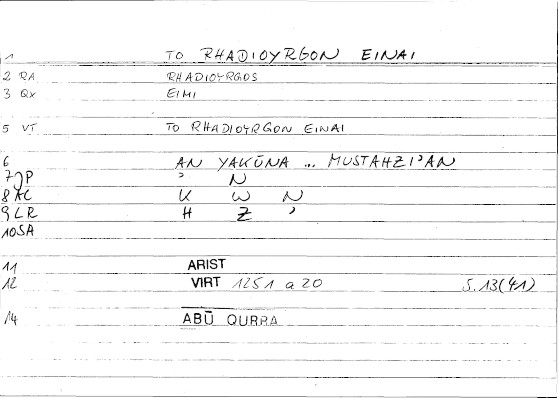 1 TO RHADIOYRGON EINAI
2 RA RHADIOYRGOS
3 QX EIMI
5 VT TO RHADIOYRGON EINAI
6 AN YAKŪNA ... MUSTAHZI'AN
7 JP ' N
8 AC K W N
9 LR H Z '
10 SA
11 ARIST
12 VIRT 1251 a 20 S. 13(41)
14 ABŪ QURRA